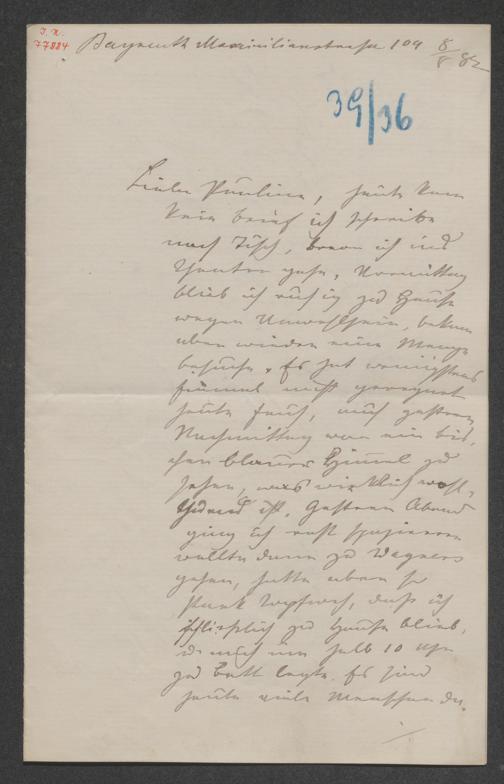 I. N.
77884
Bayreuth Maximilianstrasse 109 8/8 82
39/36
Liebe Pauline, heute kam
kein Brief ich schreibe
nach Tisch, bevor ich ins
Theater gehe, Vormittag
blieb ich ruhig zu Hause
wegen Unwohlsein, bekam
aber wieder eine Menge
Besuche. Es hat wenigstens
einmal nicht geregnet
heute früh, auch gestern
Nachmittag war ein bis-
chen blauer Himmel zu
sehen, was wirklich wohl-
thuend ist. Gestern Abend
ging ich erst spazieren
wollte dann zu Wagners
gehen, hatte aber so
stark Kopfweh, dass ich
schliesslich zu Hause blieb,
u. mich um halb 10 Uhr
zu Bett legte. Es sind
heute viele Menschen da.